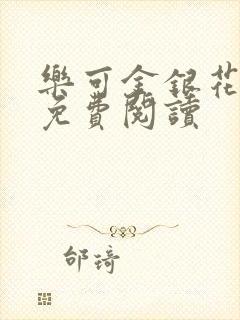 樂可金銀花
免費閱讀
邰琦